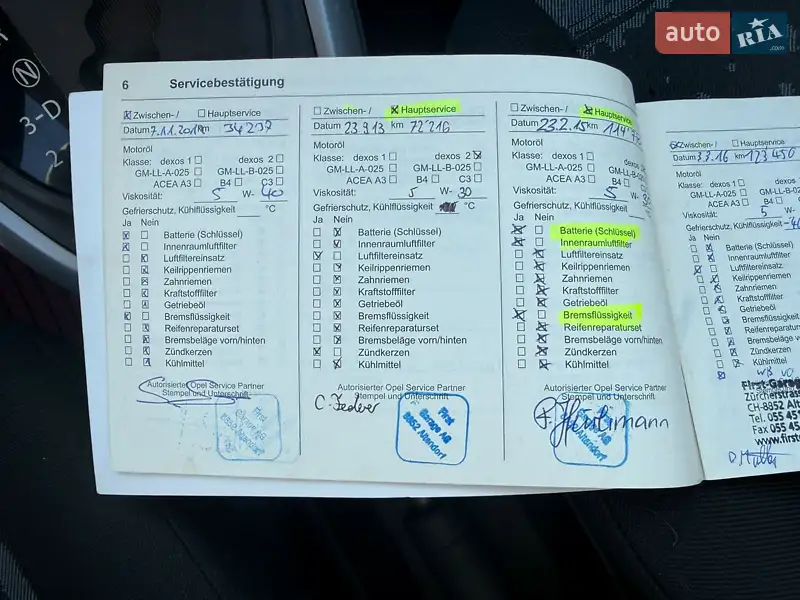 auto RIA .com
N
3-D
2-
6 Servicebestätigung
Zwischen-/ Hauptservice
Datum 7.11. km 34237
Motoröl
Klasse: dexos 1 dexos 2
GM-LL-A-025 GM-LL-B-025
ACEA A3 B4 C3
Viskosität: 5 W- 40
Gefrierschutz, Kühlflüssigkeit °C
Ja Nein
Batterie (Schlüssel)
Innenraumluftfilter
Luftfiltereinsatz
Keilrippenriemen
Zahnriemen
Kraftstofffilter
Getriebeöl
Bremsflüssigkeit
Reifenreparaturset
Bremsbeläge vorn/hinten
Zündkerzen
Kühlmittel
Autorisierter Opel Service Partner
Stempel und Unterschrift
First
Garage AG
8852 Altendorf
Zwischen-/ Hauptservice
Datum 23.9.13 km 72'216
Motoröl
Klasse: dexos 1 dexos 2
GM-LL-A-025 GM-LL-B-025
ACEA A3 B4 C3
Viskosität: 5 W- 30
Gefrierschutz, Kühlflüssigkeit °C
Ja Nein
Batterie (Schlüssel)
Innenraumluftfilter
Luftfiltereinsatz
Keilrippenriemen
Zahnriemen
Kraftstofffilter
Getriebeöl
Bremsflüssigkeit
Reifenreparaturset
Bremsbeläge vorn/hinten
Zündkerzen
Kühlmittel
Autorisierter Opel Service Partner
Stempel und Unterschrift
First
Garage AG
8852 Altendorf
Zwischen-/ Hauptservice
Datum 23.2.15 km 114'
Motoröl
Klasse: dexos 1 dexos
GM-LL-A-025 GM-LL-B-02
ACEA A3 B4 C
Viskosität: 5 W-
Gefrierschutz, Kühlflüssigkeit
Ja Nein
Batterie (Schlüssel)
Innenraumluftfilter
Luftfiltereinsatz
Keilrippenriemen
Zahnriemen
Kraftstofffilter
Getriebeöl
Bremsflüssigkeit
Reifenreparaturset
Bremsbeläge vorn/hinten
Zündkerzen
Kühlmittel
Autorisierter Opel Service Partner
Stempel und Unterschrift
Altendorf
Zwischen-/ Hauptservice
Datum 3.3.16 km 123450
Motoröl
Klasse: dexos 1 dexos
GM-LL-A-025 GM-LL-
ACEA A3 B4
Viskosität: 5 W-
Gefrierschutz, Kühlflüssigkeit
Ja Nein
Batterie (Schlüssel)
Innenraumluftfilter
Luftfiltereinsatz
Keilrippenriemen
Zahnriemen
Kraftstofffilter
Getriebeöl
Bremsflüssigkeit
Reifenreparaturset
Bremsbeläge vorn/
Zündkerzen
Kühlmittel
First-Garag
Zürcherstrass
CH-8852 Alt
Tel. 055 45
Fax 055 45
www.first